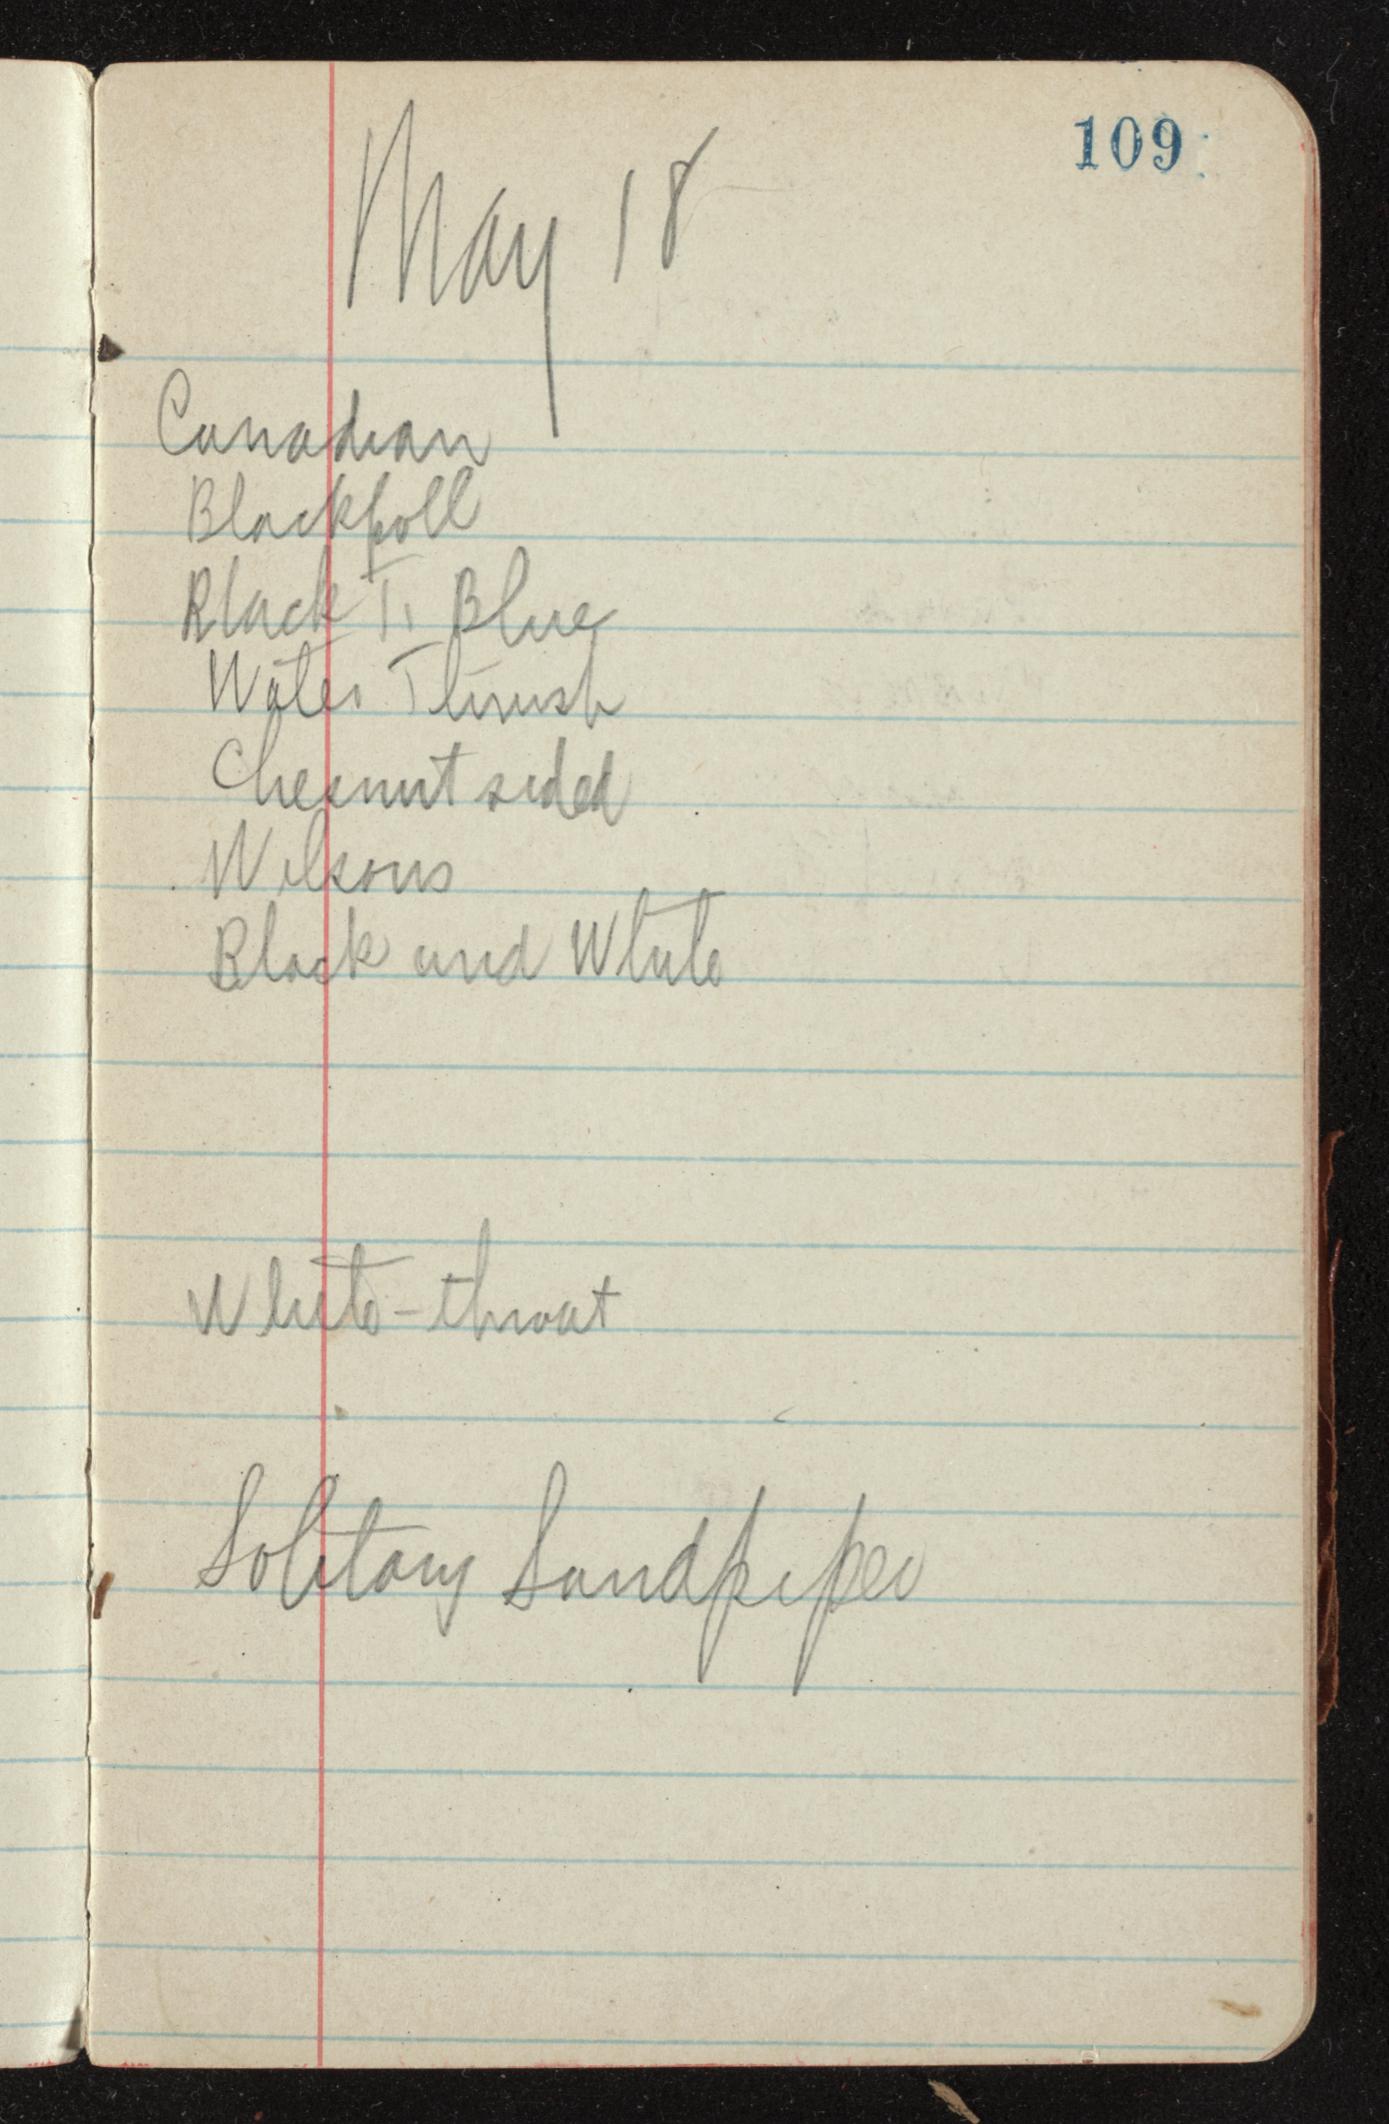 109
May 18
Canadian
Blackpoll
Black T. Blue
Water Thrush
Chesnut sided
Wilsons
Black and White
White-throat
Solitary Sandpiper